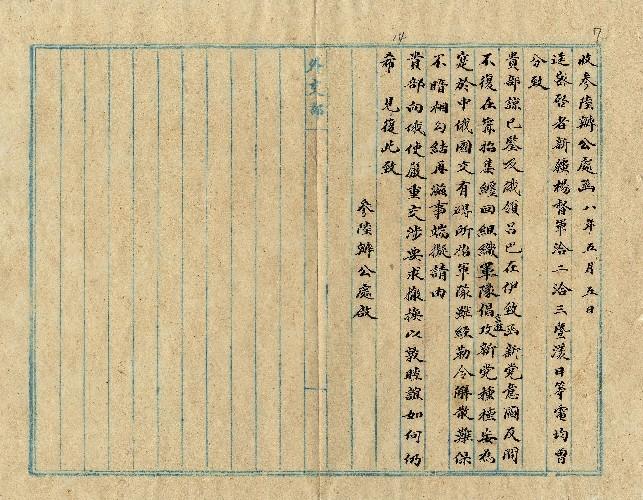 收參陸辦公處函八年五月五日
逕密啓者新疆楊督軍洽二洽三豏漾日等電均曾
分致
貴部諒已鑒及俄領呂巴在伊致函新党意圖反間
不復在甯招集纏回組織軍隊倡攻新党種種妄爲
寔於中俄國交有碍所招軍隊雖經勒令解散難保
不暗相勾結再滋事端擬請由
貴部向俄使嚴重交涉要求撤換以敦睦誼如何仍
希 見復此致
參陸辦公處啟
外交部
14
7